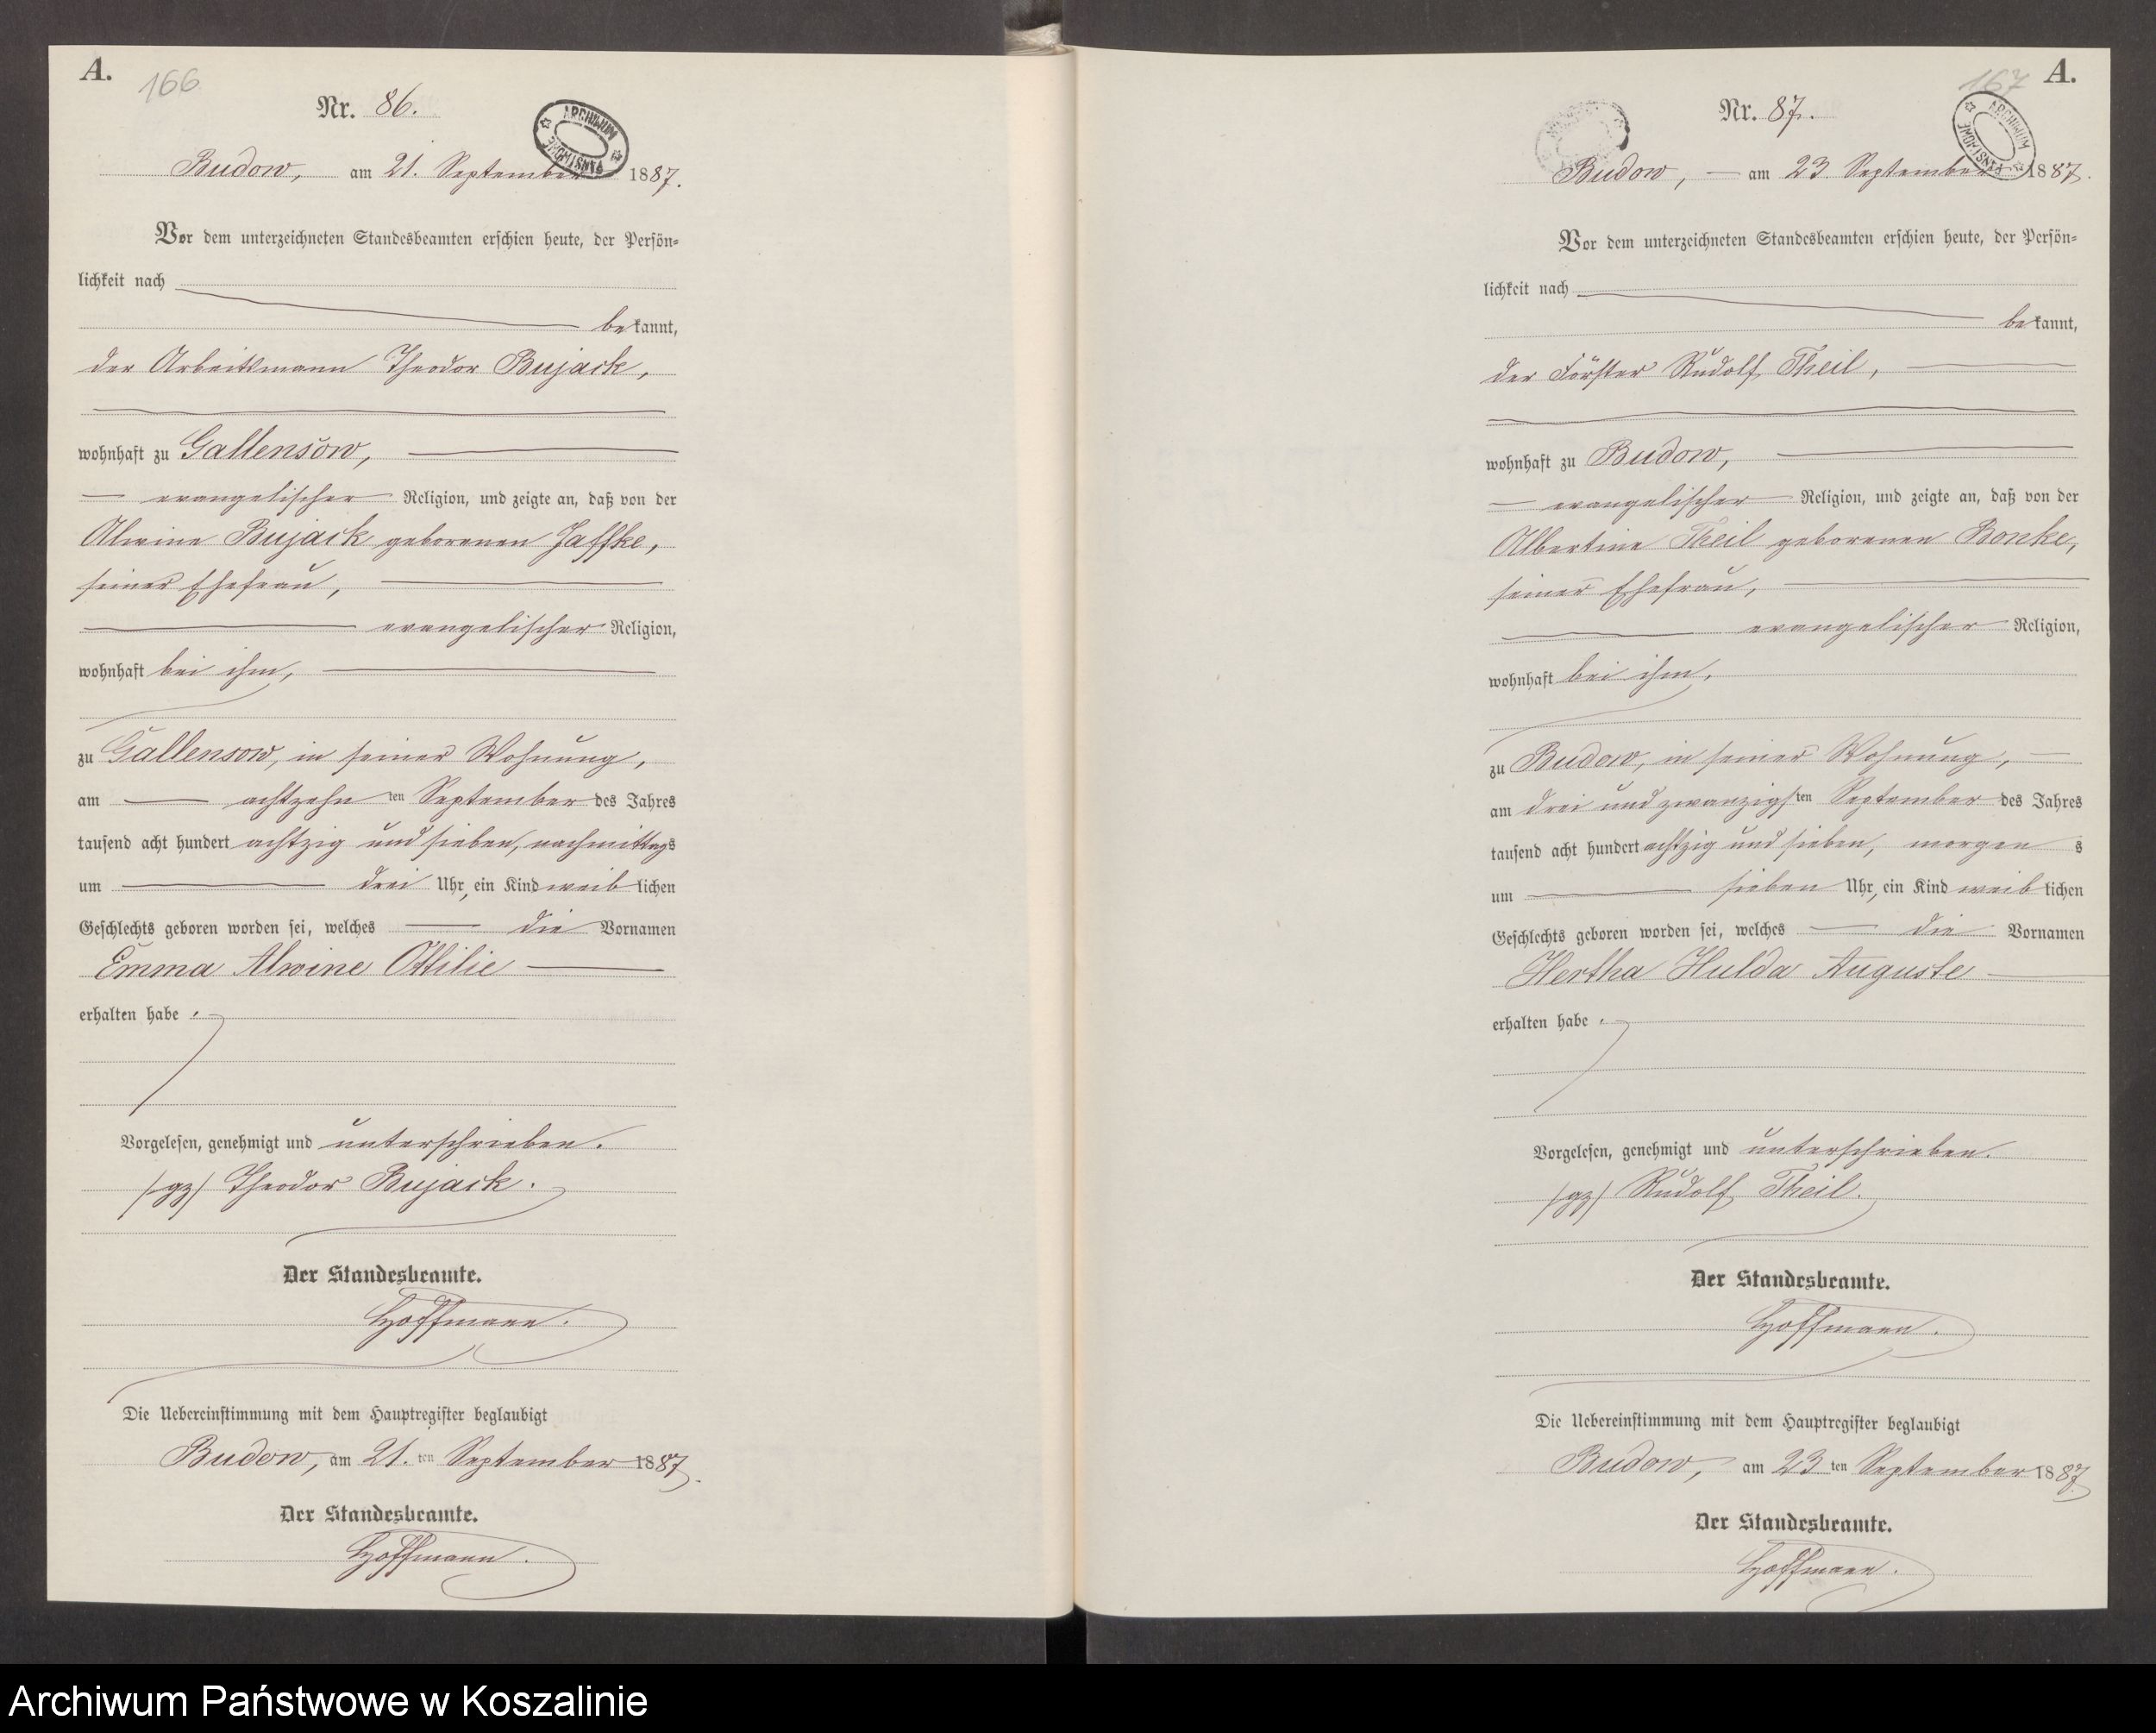 A.
166
Nr. 86.
ARCHIWUM PAŃSTWOWE
Budow, am 21. September 1887.
Vor dem unterzeichneten Standesbeamten erschien heute, der Persön=
lichkeit nach
bekannt,
der Arbeitsmann Theodor Bujack,
wohnhaft zu Gallensow,
evangelischer Religion, und zeigte an, daß von der
Alwine Bujack geborenen Jaffke,
seiner Ehefrau,
evangelischer Religion,
wohnhaft bei ihm,
zu Gallensow, in seiner Wohnung,
am achtzehn ten September des Jahres
tausend acht hundert achtzig und sieben, nachmittags
um drei Uhr, ein Kind weiblichen
Geschlechts geboren worden sei, welches die Vornamen
Emma Alwine Ottilie
erhalten habe.
Vorgelesen, genehmigt und unterschrieben.
/gz/ Theodor Bujack.
Der Standesbeamte.
Hoffmann.
Die Uebereinstimmung mit dem Hauptregister beglaubigt
Budow, am 21. ten September 1887.
Der Standesbeamte.
Hoffmann.
167
A.
Nr. 87.
ARCHIWUM PAŃSTWOWE
Budow, am 23. September 1887.
Vor dem unterzeichneten Standesbeamten erschien heute, der Persön=
lichkeit nach
bekannt,
der Förster Rudolf Theil,
wohnhaft zu Budow,
evangelischer Religion, und zeigte an, daß von der
Albertine Theil geborenen Bonke,
seiner Ehefrau,
evangelischer Religion,
wohnhaft bei ihm,
zu Budow, in seiner Wohnung,
am drei und zwanzigsten September des Jahres
tausend acht hundert achtzig und sieben, morgens
um sieben Uhr, ein Kind weiblichen
Geschlechts geboren worden sei, welches die Vornamen
Hertha Hulda Auguste
erhalten habe.
Vorgelesen, genehmigt und unterschrieben.
/gz/ Rudolf Theil.
Der Standesbeamte.
Hoffmann.
Die Uebereinstimmung mit dem Hauptregister beglaubigt
Budow, am 23 ten September 1887.
Der Standesbeamte.
Hoffmann.
Archiwum Państwowe w Koszalinie